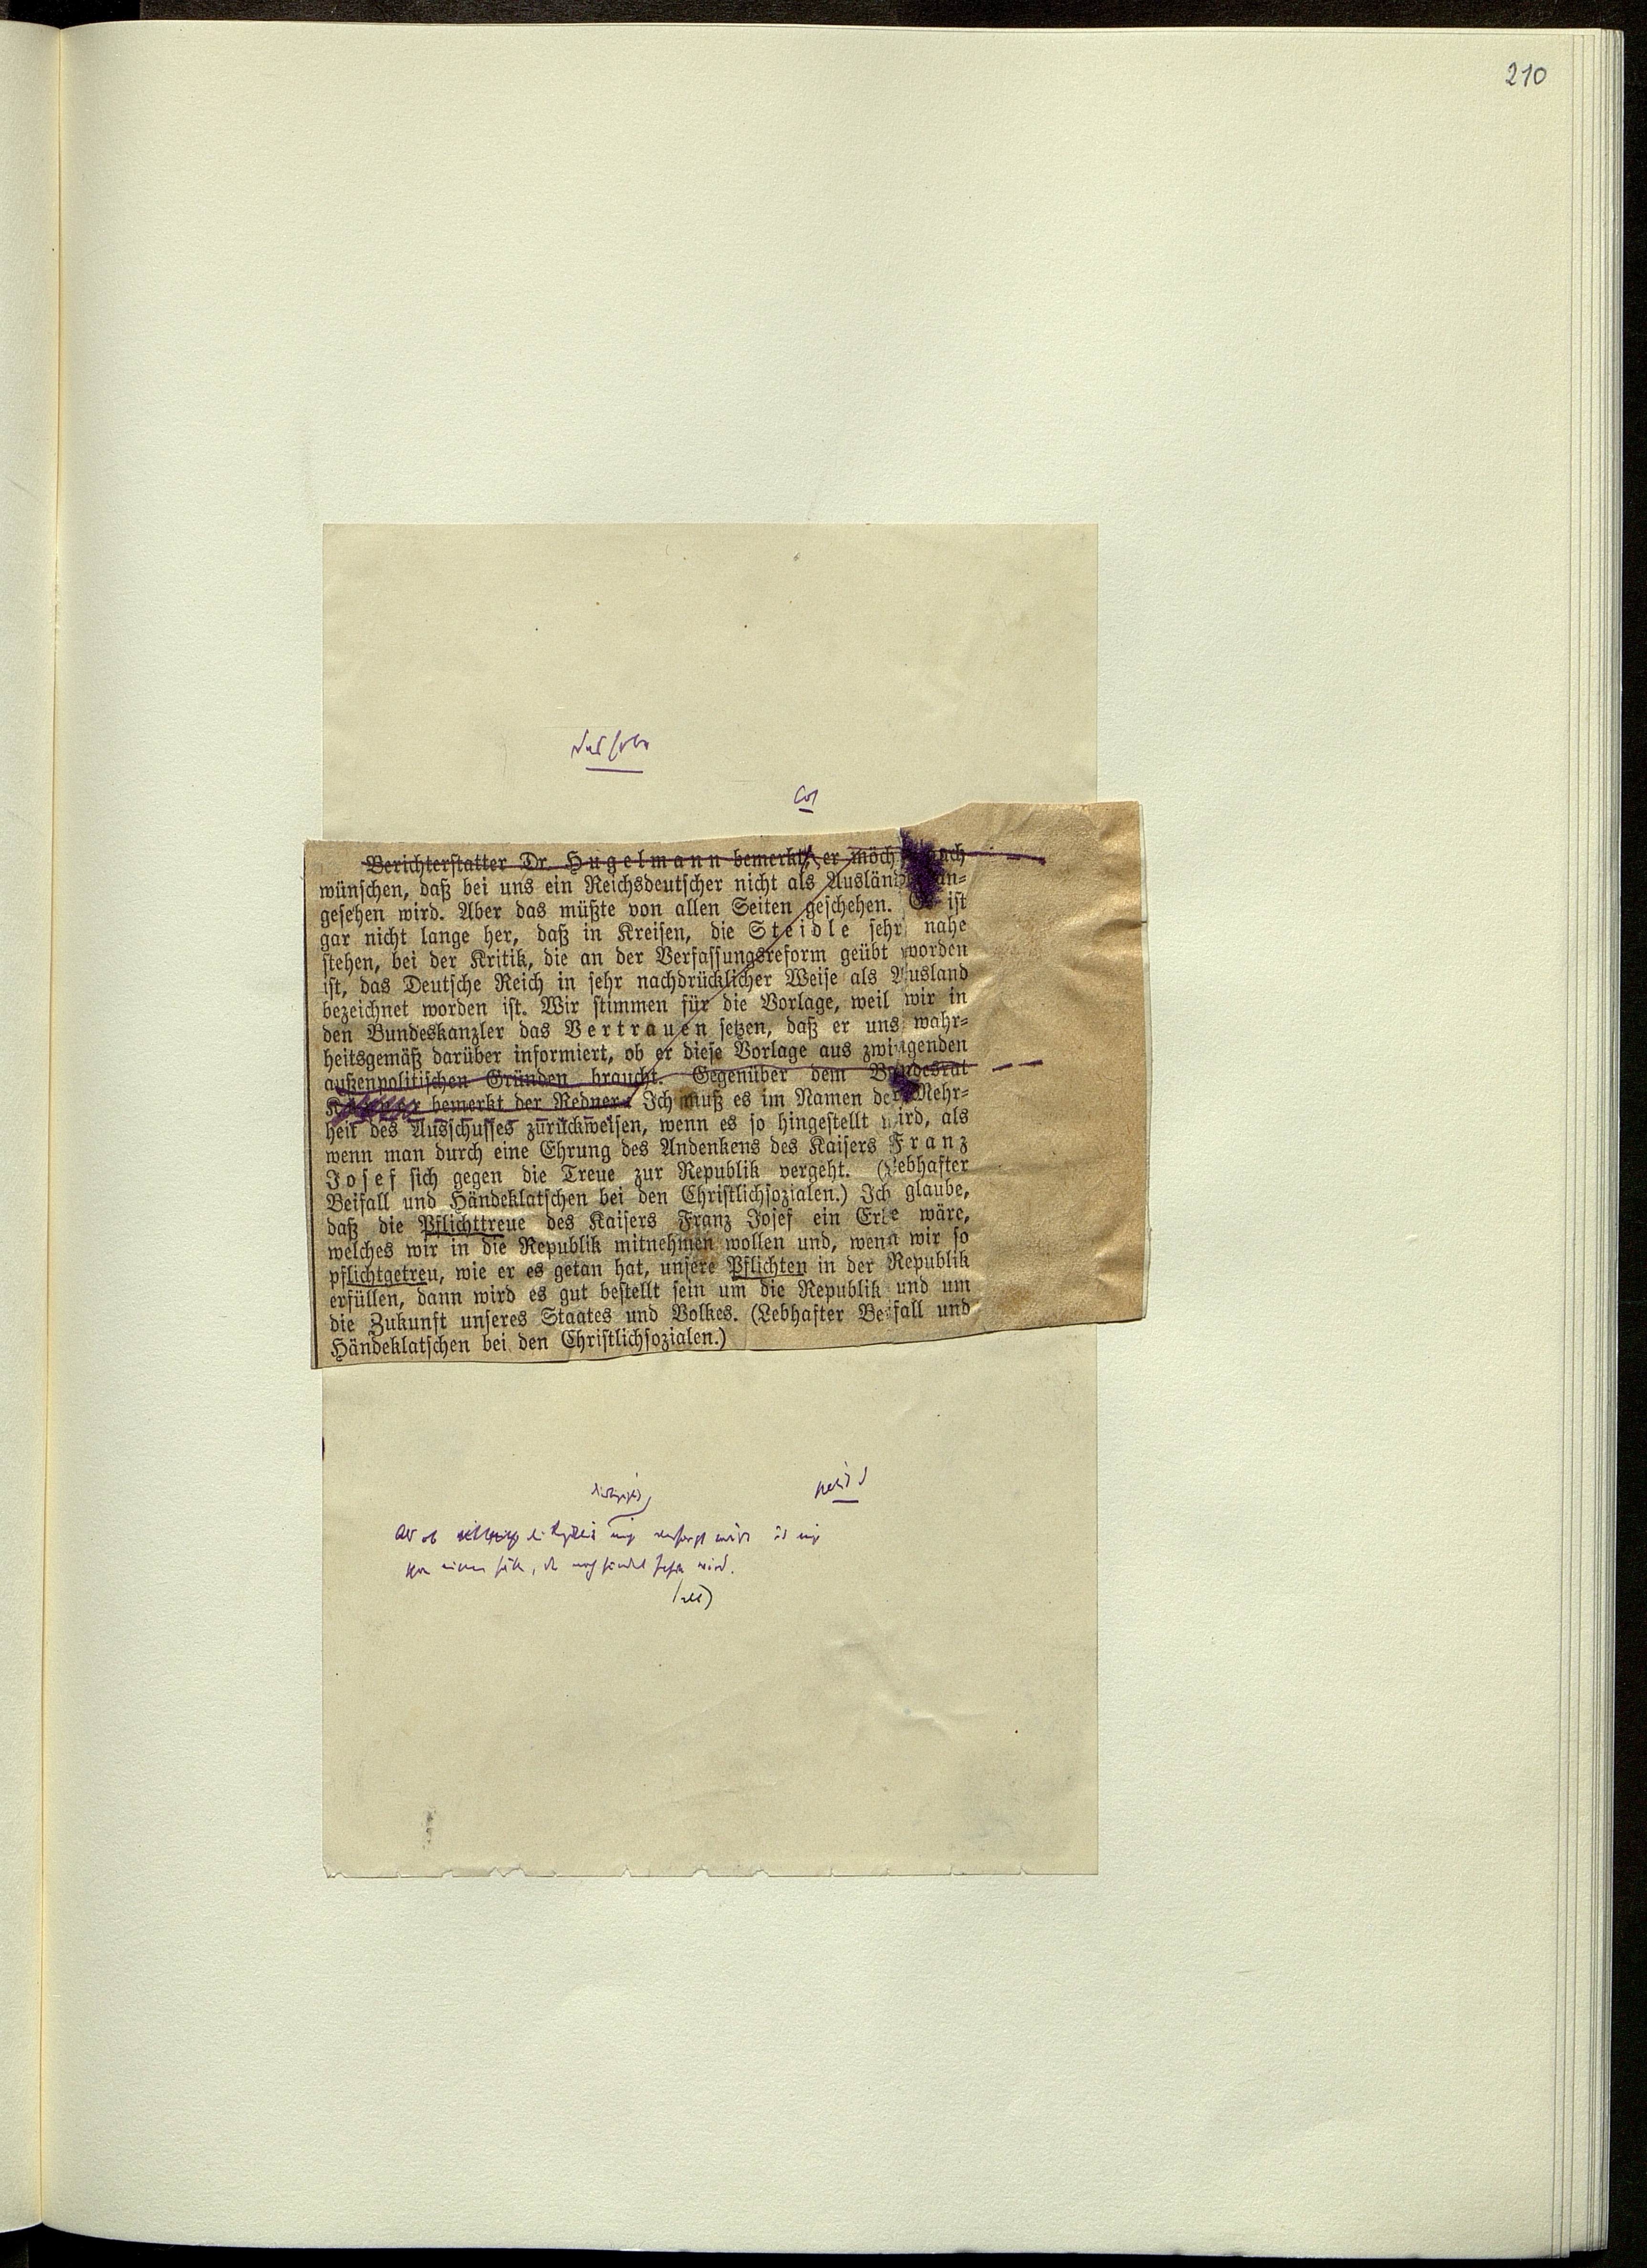 210
Berichterstatter Dr. Hugelmann bemerkt, er möch ach
wünschen, daß bei uns ein Reichsdeutscher nicht als Auslän an-
gesehen wird. Aber das müßte von allen Seiten geschehen. Es ist
gar nicht lange her, daß in Kreisen, die Steidle sehr nahe
stehen, bei der Kritik, die an der Verfassungsreform geübt worden
ist, das Deutsche Reich in sehr nachdrücklicher Weise als Ausland
bezeichnet worden ist. Wir stimmen für die Vorlage, weil wir in
den Bundeskanzler das Vertrauen setzen, daß er uns wahr-
heitsgemäß darüber informiert, ob er diese Vorlage aus zwingenden
außenpolitischen Gründen braucht. Gegenüber dem Bundesrat
bemerkt der Redner: Ich muß es im Namen der Mehr-
heit des Ausschusses zurückweisen, wenn es so hingestellt wird, als
wenn man durch eine Ehrung des Andenkens des Kaisers Franz
Josef sich gegen die Treue zur Republik vergeht. (Lebhafter
Beifall und Händeklatschen bei den Christlichsozialen.) Ich glaube,
daß die Pflichttreue des Kaisers Franz Josef ein Erbe wäre,
welches wir in die Republik mitnehmen wollen und, wenn wir so
pflichtgetreu, wie er es getan hat, unsere Pflichten in der Republik
erfüllen, dann wird es gut bestellt sein um die Republik und um
die Zukunft unseres Staates und Volkes. (Lebhafter Beifall und
Händeklatschen bei den Christlichsozialen.)